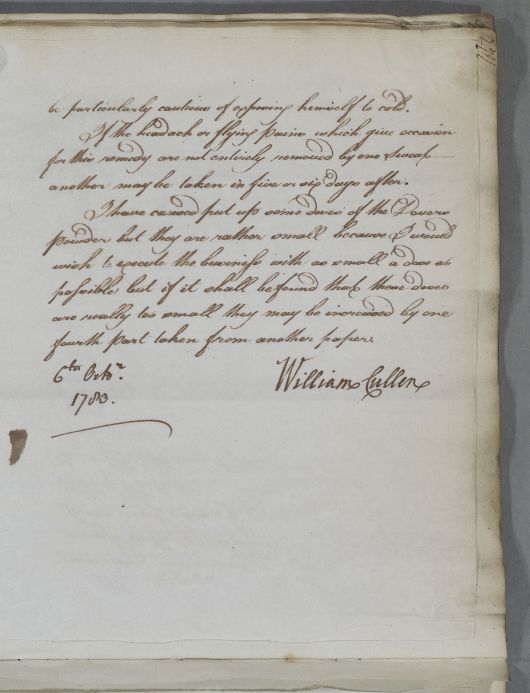 be particularly cautious of exposing himself to cold.
If the headach or flying pains which give occasion
for this remedy are not entirely removed by one Sweat
another may be taken in five or six days after.
I have caused put up some doses of the Dovers
powder but they are rather small because I would
wish to execute the business with as small a dose as
possible but if it shall be found that these doses
are really too small they may be increased by one
fourth part taken from another paper.
6th Octor.
1783.
William Cullen